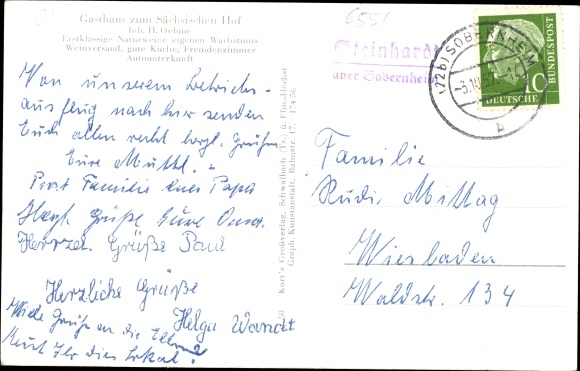 6551
Gasthaus zum Sächsischen Hof
Inh. H. Oehme
Erstklassige Naturweine eigenen Wachstums
Weinversand, gute Küche, Fremdenzimmer
Autounterkunft
Steinhardt
über Sobernheim
(22b) SOBERNHEIM
b
10
DEUTSCHE BUNDESPOST
Von unserem Betriebs-
ausflug nach hier senden
Euch allen recht herzl. Grüße
Eure Mutti. -
Prost Familie Euer Papa
Herzl. Grüße Eure Oma.
Herzl. Grüße Paul
Herzliche Grüße
Helga Wandt
Viele Grüße an die Eltern
Kennt Ihr dies Lokal?
Korr's Großverlag, Schwalbach (Ts.) a. Ffm-Höchst
Graph. Kunstanstalt, Bahnstr. 17,
Familie
Rudi Mittag
Wiesbaden
Waldstr. 134